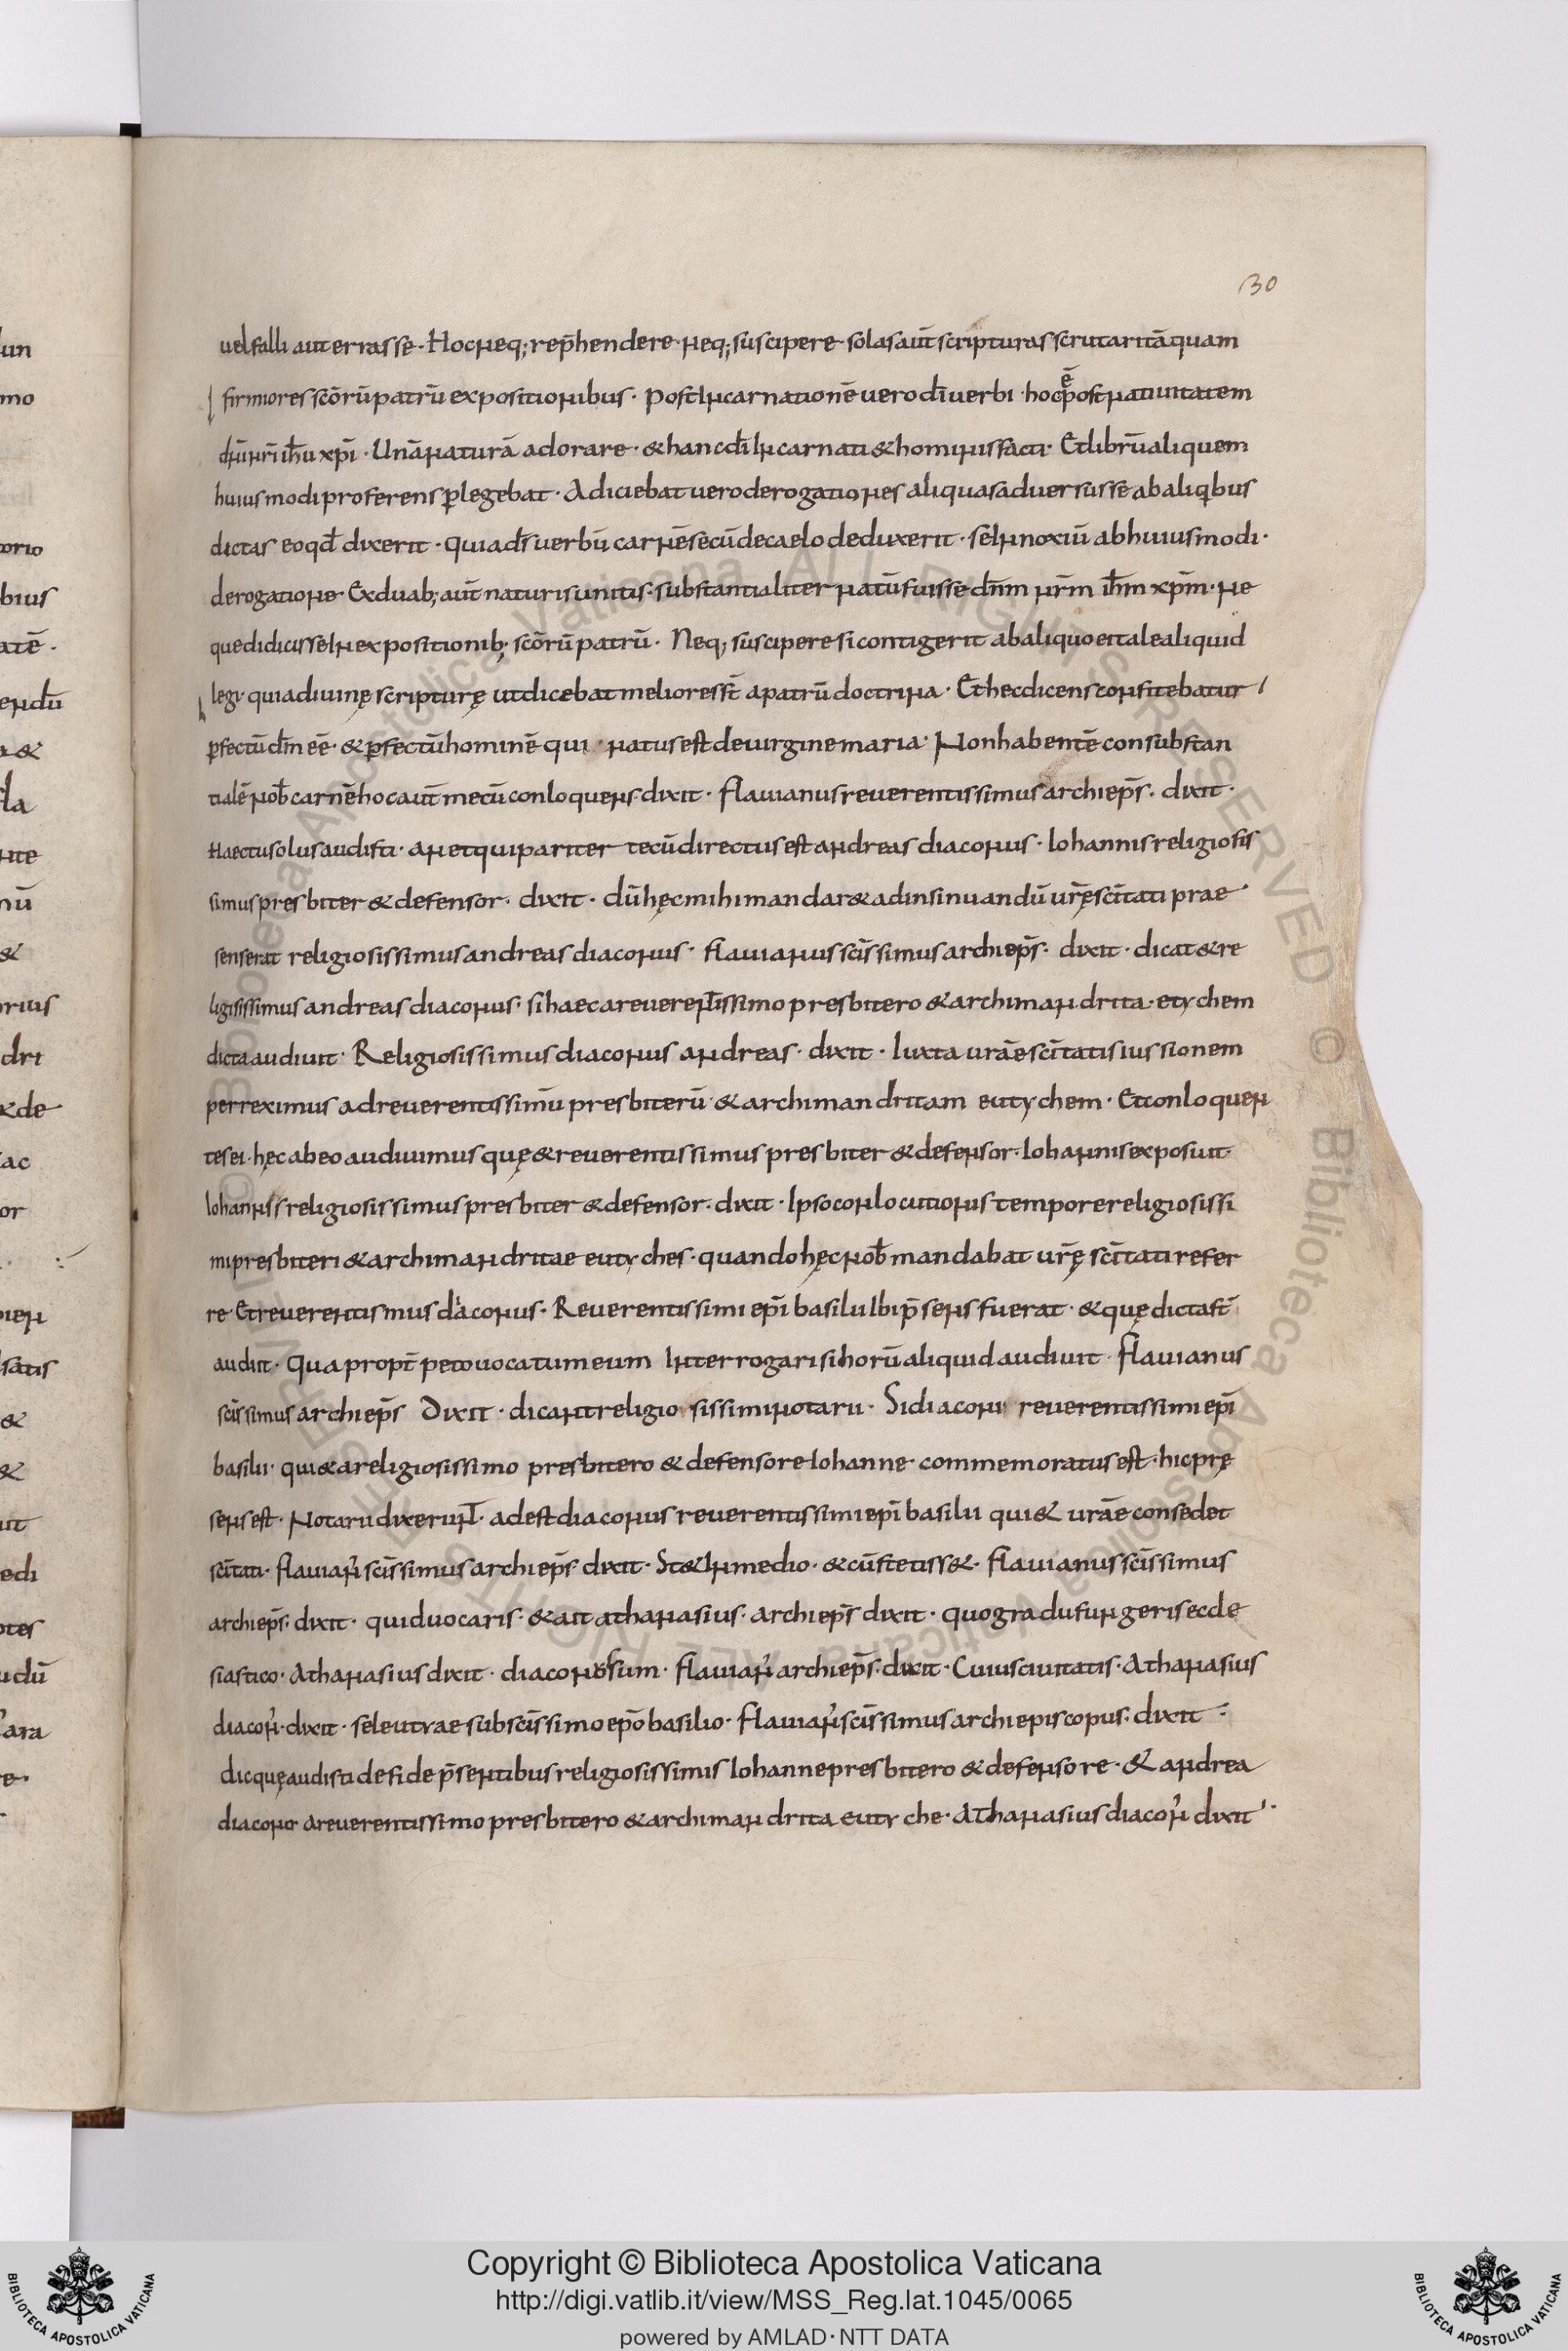 30
uel falli aut errasse. Hoc neq; rep̄hendere neq; suscipere solas aūt scripturas scrutari tāquam
firmiores scōrū patrū expositionibus. Post Incarnationē uero dī uerbi hoc ē post natiuitatem
dn̄i nr̄i ih̄u xp̄i. Unā naturā adorare. & hanc dī Incarnati & hominis facti. Et librū aliquem
huiusmodi proferens ꝑlegebat. Adiciebat uero derogationes aliquas aduersus se ab aliqibus
dictas eo qd̄ dixerit. quia ds̄ uerbū carnē secū de caelo deduxerit. se Innoxiū ab huiusmodi.
derogatione. Ex duab; aūt naturis unitis. substantialiter natū fuisse dn̄m nr̄m ih̄m xp̄m. ne
que didicisse In expositionib; scōrū patrū. Neq; suscipere si contigerit ab aliquo ei tale aliquid
legi. quia diuinę scripturę ut dicebat meliores st̄ a patrū doctrina. Et hec dicens confitebatur
ꝑfectū dm̄ eē. & ꝑfectū hominē qui natus est de uirgine maria. Non habentē consubstan
tialē nob̄ carnē hoc aūt mecū conloquens. dixit. flauianus reuerentissimus archiep̄s. dixit.
Haec tu solus audisti. an et qui pariter tecū directus est andreas diaconus. Iohannis religiosis
simus presbiter & defensor. dixit. dū hęc mihi mandar& ad insinuandū ur̄ę sc̄itati prae
senserat religiosissimus andreas diaconus. flauianus scīssimus archiep̄s. dixit. dicat & re
ligisissimus andreas diaconus. si haec a reueren̄tissimo presbitero & archimandrita. etychem
dicta audiuit. Religiosissimus diaconus andreas. dixit. Iuxta urāe sc̄itatis iussionem
perreximus ad reuerentissimū presbiterū & archimandritam eutychem. Et conloquen
tes ei. hęc ab eo audiuimus quę & reuerentissimus presbiter & defensor. Iohannis exposuit.
Iohannis religiosissimus presbiter & defensor. dixit. Ipso conlocutionis tempore religiosissi
mi presbiteri & archimandritae eutyches. quando hęc nob̄ mandabat ur̄ę sc̄itati refer
re. Et reuerentismus diaconus. Reuerentissimi ep̄i basilii Ibi p̄sens fuerat. & quę dicta st̄
audiit. Qua propt̄ peto uocatum eum Interrogari si horū aliquid audiuit. flauianus
scīssimus archiep̄s Dixit. dicant religiosissimi notarii. Si diaconus reuerentissimi ep̄i
basilii. qui & a religiosissimo presbitero & defensore Iohanne commemoratus est. hic prę
sens est. Notarii dixerunt̄. adest diaconus reuerentissimi ep̄i basilii qui & urāe consedet
sc̄itati. flauian̄ scīssimus archiep̄s. dixit. St& In medio. & cū stetiss&. flauianus scīssimus
archiep̄s. dixit. quid uocaris. & ait athanasius. archiep̄s dixit. quo gradu fungeris eccle
siastico. Athanasius dixit. diaconus sum. flauian̄ archiep̄s. dixit. Cuius ciuitatis. Athanasius
diacon̄. dixit. seleutiae sub scīssimo ep̄o basilio. flauian̄ scīssimus archiepiscopus. dixit.
dic quę audisti de fide p̄sentibus religiosissimis Iohanne presbitero & defensore. & andrea
diacono a reuerentissimo presbitero & archimandrita eutyche. Athanasius diacon̄ dixit.
Copyright © Biblioteca Apostolica Vaticana
http://digi.vatlib.it/view/MSS_Reg.lat.1045/0065
powered by AMLAD·NTT DATA